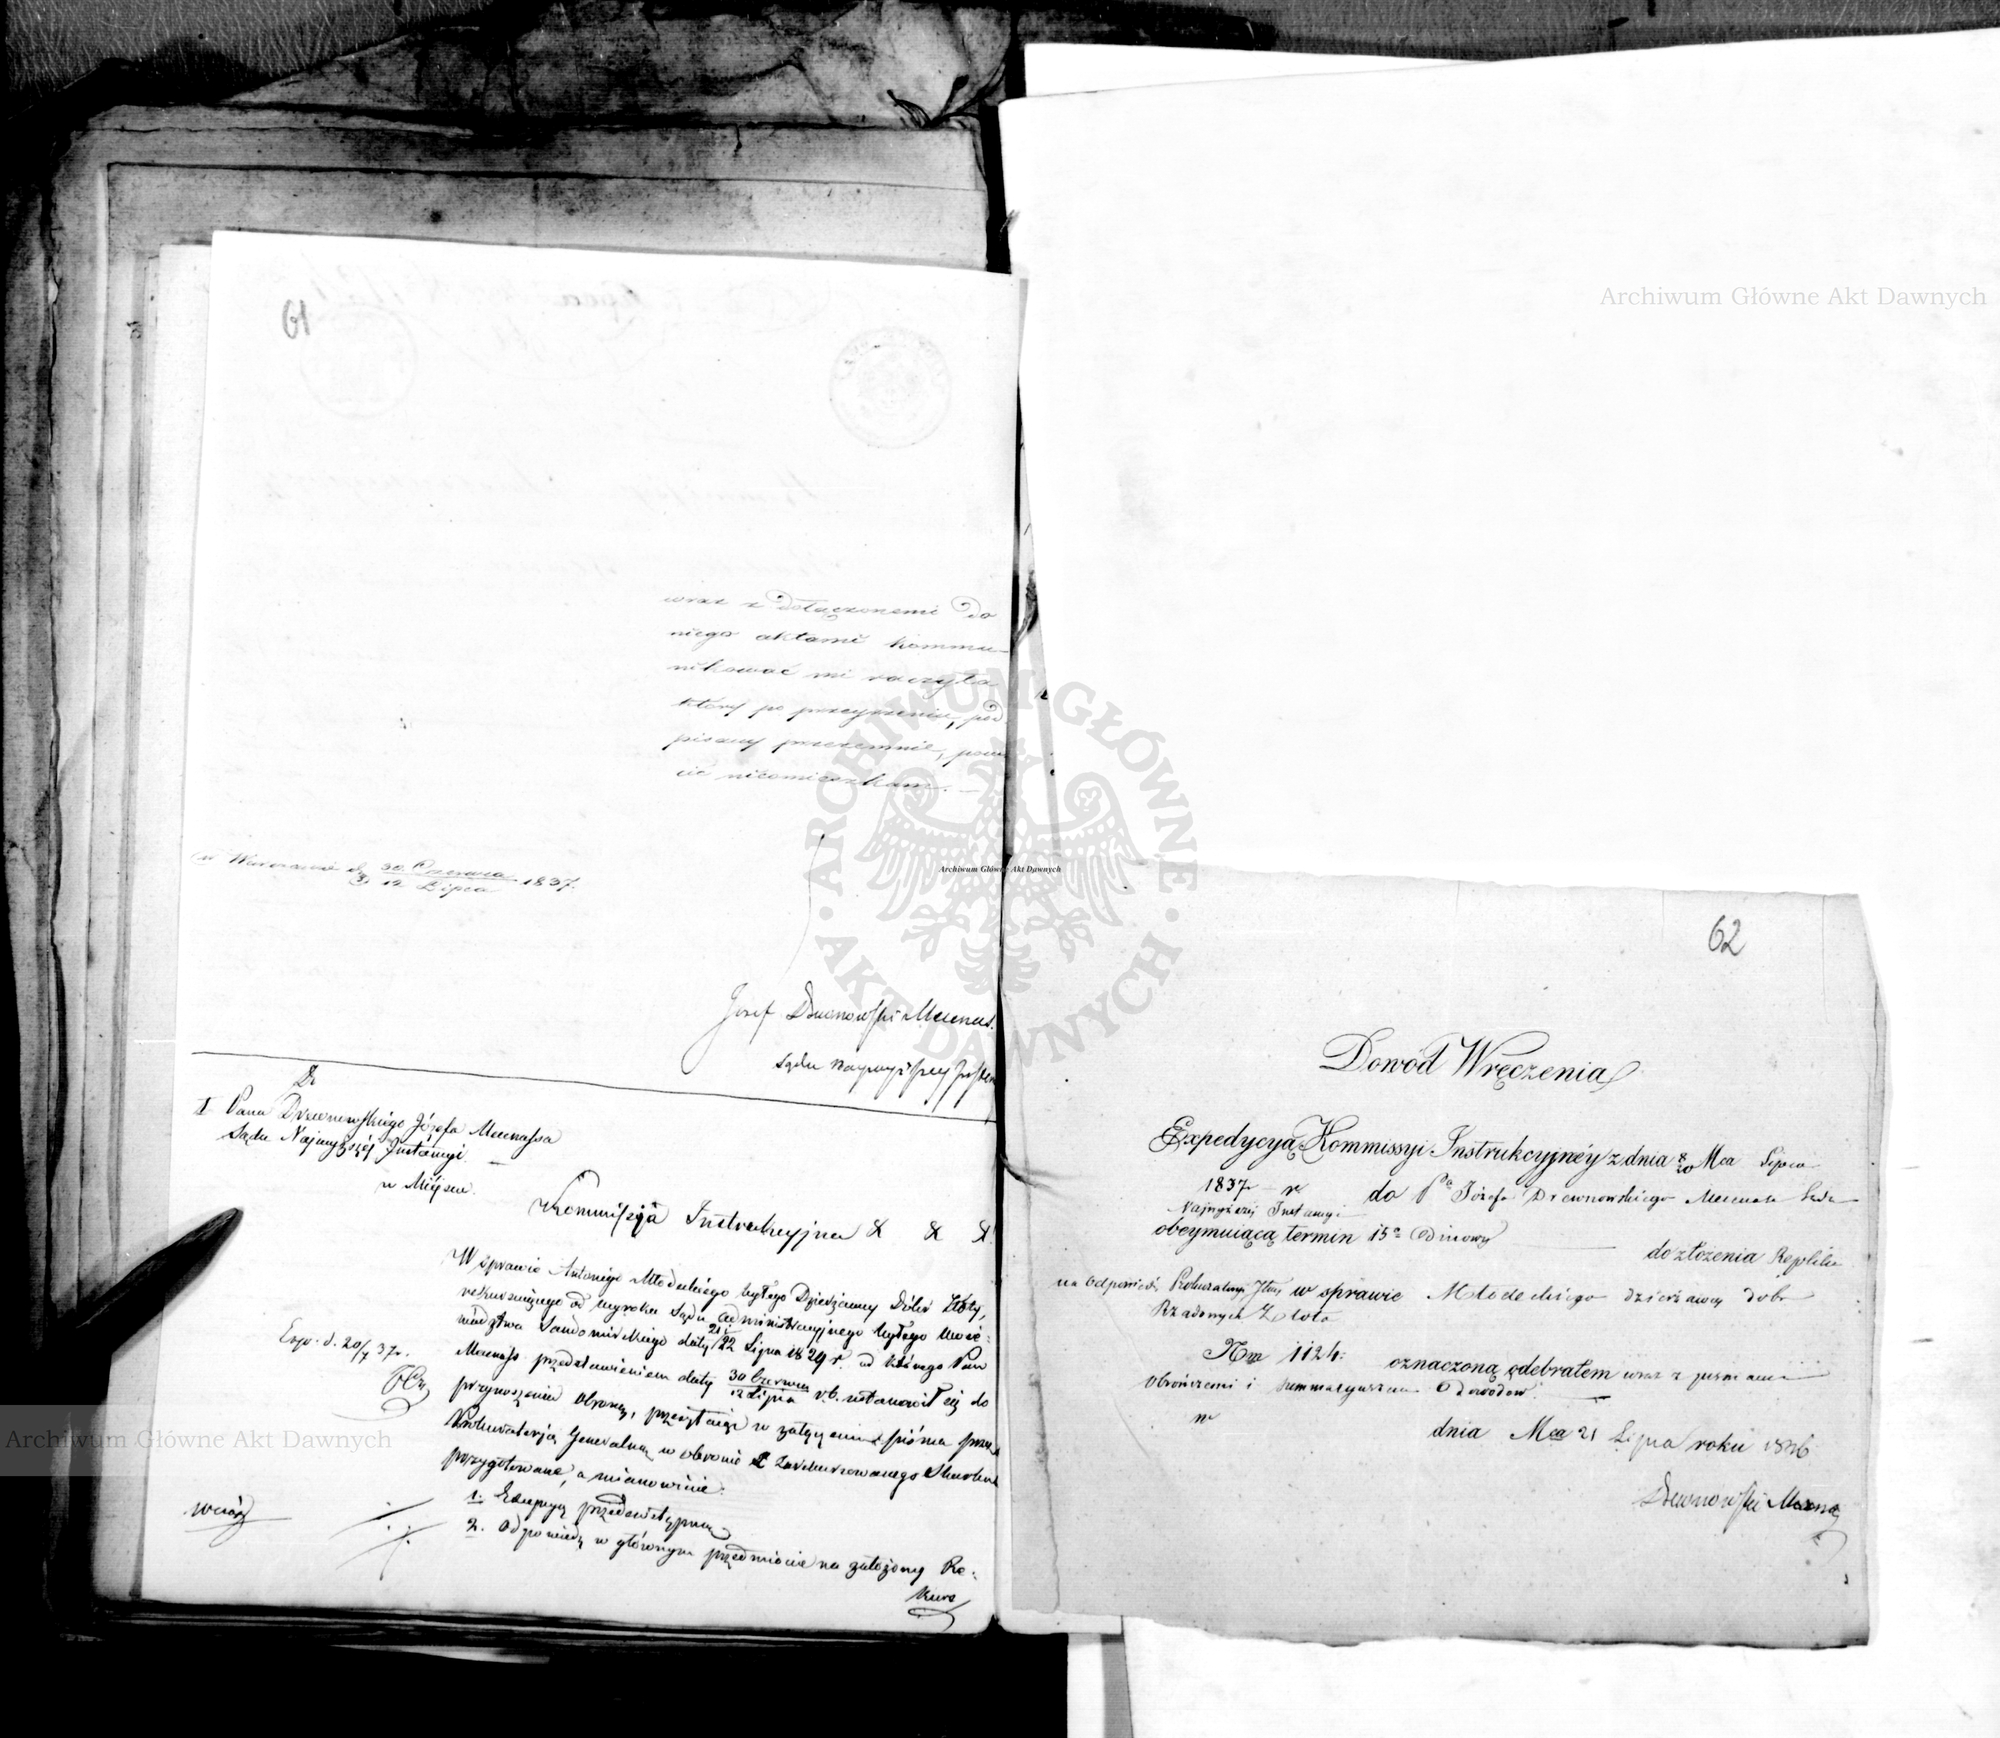 61
wraz z dołączonemi do
niego aktami kommu-
nikować mi raczyła
który po przeyrzeniu, pod-
pisany przezemnie, 
nieomieszkam. —
w Warszawie d. 30 Czerwca / 12 Lipca 1837.
Józef Drewnowski Mecenas
Sądu Najwyższej Instan
Do
I Pana Drewnowskiego Józefa Mecenassa
Sądu Najwyższéj Instancyi. —
w Miejscu.
Kommissyia Instrukcyjna & & &
W sprawie Antoniego Młodeckiego byłego Dzierżawcy Dóbr Złoty,
rekurującego od wyroku Sądu Administracyjnego byłego Woje-
wództwa Sandomirskiego daty 21 i/22 Lipca 1829 r. od którego Pan
Mecenass przedstawieniem daty 30 Czerwca / 12 Lipca r. b. ustanowił się do
przynoszenia obrony, przesyłając w załączeniu pisma przez
Prokuratoryą Generalną w obronie zarekurowanego Skarbu
przygotowane, a mianowicie:
1. Excepcyą 
2. Odpowiedź w głównym przedmiocie na założony Re-
kurs
Exp. d. 20/7 37 r.
62
Dowód Wręczenia
Expedycyą Kommissyi Instrukcyjnéy z dnia 8/20 Mca Lipca
1837 r. do Pa Józefa Drewnowskiego Mecenasa Sądu
Najwyższej Instancyi
obeymuiącą termin 15o Dniowy — do złożenia Repliki
na odpowiedź Prokuratoryi Jlnej w sprawie Młodeckiego dzierżawcy dobr
Rządowych Złota
Nrm 1124: oznaczoną odebrałem wraz z pismami
obrończemi i summaryuszem Dowodow.
w
dnia Mca 21 Lipca roku 18
Drewnowski Mecenas
Archiwum Główne Akt Dawnych
Archiwum Główne Akt Dawnych
Archiwum Główne Akt Dawnych
ARCHIWUM GŁÓWNE AKT DAWNYCH